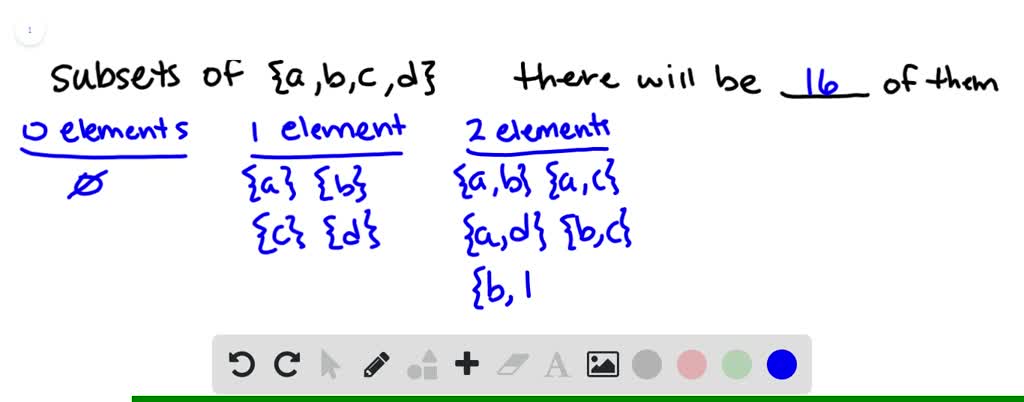 1
subsets of {a,b,c,d} there will be 16 of them
0 elements 1 element 2 elements
∅ {a} {b} {a,b} {a,c}
{c} {d} {a,d} {b,c}
{b,
A